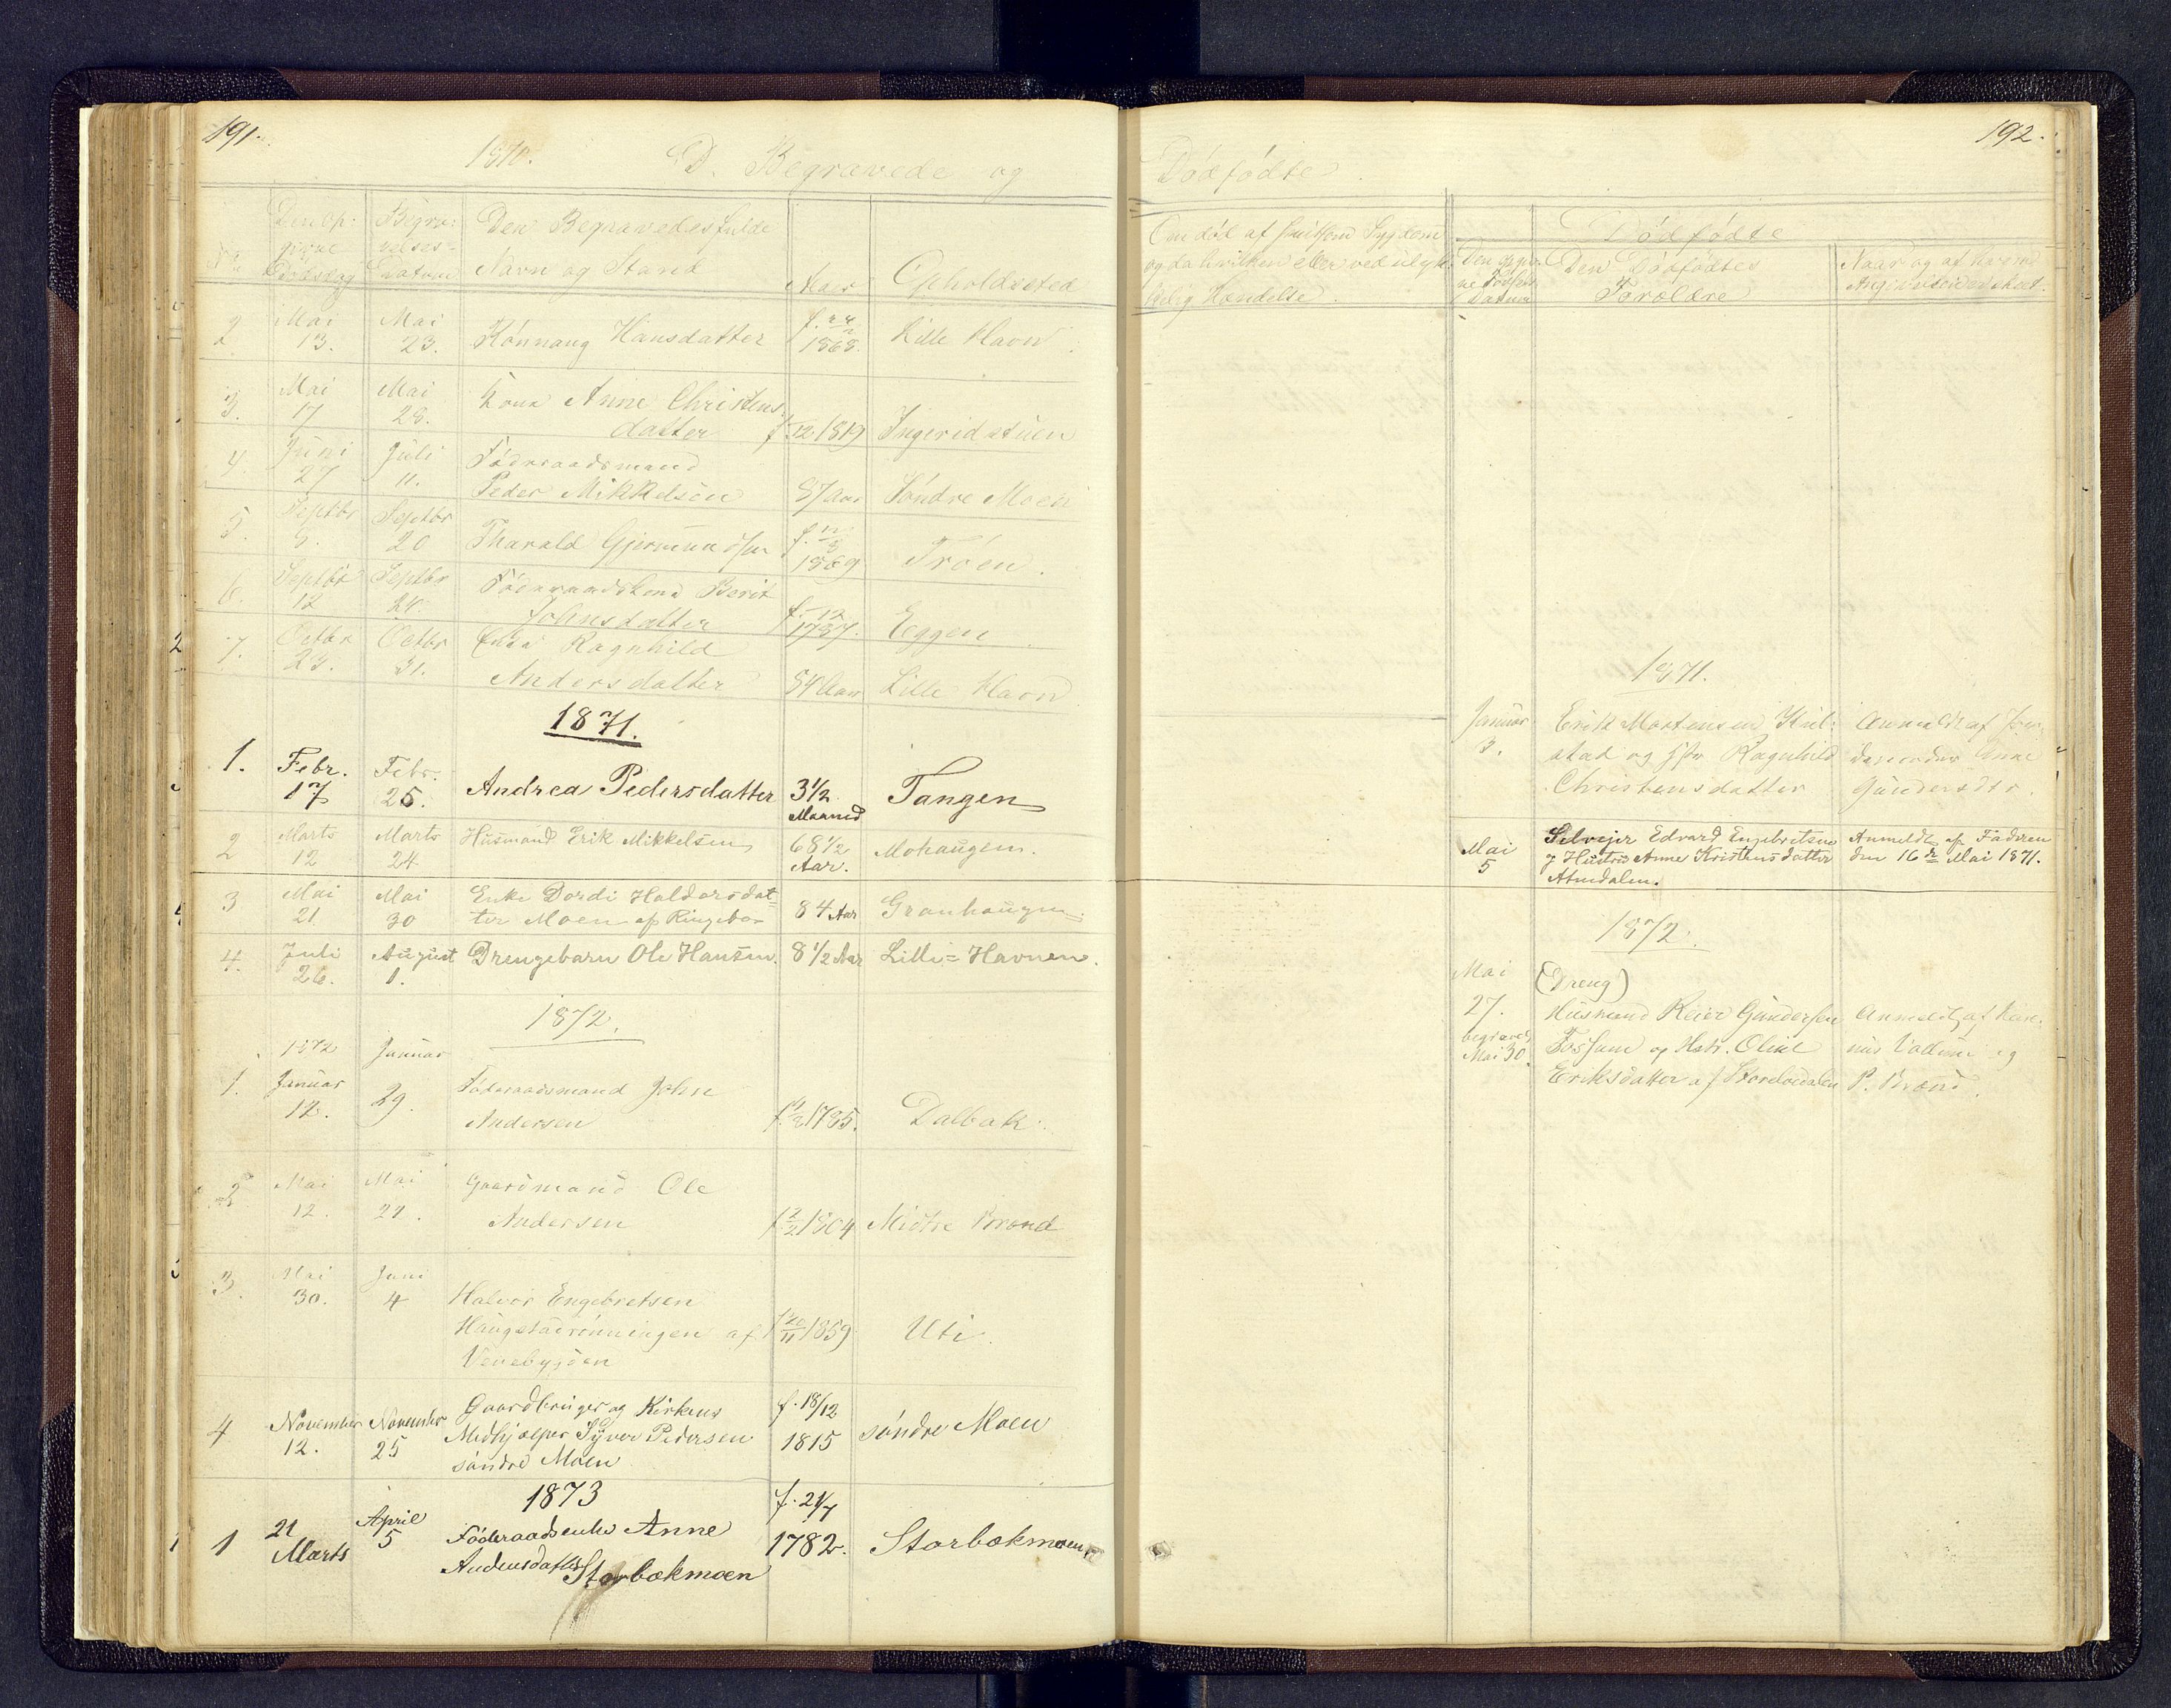 191.
1870.
D. Begravede og
No
Den op-
givne
Dødsdag
Begra-
velses-
Datum
Den Begravedes fulde
Navn og Stand
Alder
Opholdssted
2
Mai
13.
Mai
23.
Rønnaug Hansdatter
1868.
Lille Havn
3.
Mai
17
Mai
28.
Kone Anne Christens
datter
f. 12. 1819
Ingeridstuen
4.
Juni
27
Juli
11.
Föderaadsmand
Peder Mikkelsen
87 Aar
Söndre Moen
5.
Septbr
Septbr
20
Tharald Gjermundsen
1869
Tröen.
6.
Septbr
12
Septbr
24.
Föderaadskone Berit
Johnsdatter
1787.
Eggen
7.
Octbr
23.
Octbr
31.
Enke Ragnhild
Andersdatter
84 Aar
Lille Havn
1871.
1.
Febr.
17
Febr.
25.
Andrea Pedersdatter
3½
Maaned
Tangen
2
Marts
12
Marts
24
Husmand Erik Mikkelsen
68½
Aar.
Mohaugen.
3
Mai
21
Mai
30
Enke Dordi Haldorsdat-
ter Moen af Ringebo
84 Aar
Granhaugen.
4.
Juli
26.
August
1.
Drengebarn Ole Hansen.
8½ Aar
Lille=Havnen.
1872.
1.
1872
Januar
12.
Januar
29.
Föderaadsmand John
Andersen
1785.
Dalbak.
2
Mai
12.
Mai
22.
Gaardmand Ole
Andersen
1804
Midtre Brænd
3.
Mai
30.
Juni
4
Halvor Engebretsen
Haugstadrönningen af
Venebygden
f 20/11 1859
Uti.
4
November
12.
November
25
Gaardbruger og Kirkens
Medhjælper Syver Pedersen
söndre Moen
f. 18/12
1815
söndre Moen
1873
1
21
Marts
April
5
Föderaadsenke Anne
Andersdatter Storbækmoen
f. 21/7
1782.
Storbækmoen
192.
Dødfødte.
Om død af smitsom Sygdom
og da hvilken eller ved ulyk-
kelig Hændelse.
Dødfødte
Den opgiv-
ne Fødsels
Datum
Den Dødfødtes
Forældre
Naar og af hvem
Angivelsen er skeet.
1871.
Januar
3.
Erik Mortensen Kul-
stad og Hstr Ragnhild
Christensdatter
Anmeldt af Jor-
demoder Anne
Gundersdtr.
Mai
5
Selvejer Edvard Engebretsen
og Hustru Anne Kristensdatter
Atnedalen.
Anmeldt af Faderen
den 16de Mai 1871.
1872.
Mai
27.
begravet
Mai 30.
(Dreng)
Husmand Reier Gundersen
Fossum og Hstr. Oline
Eriksdatter af Storelvedalen
Anmeldt af
og
P. Brænd.